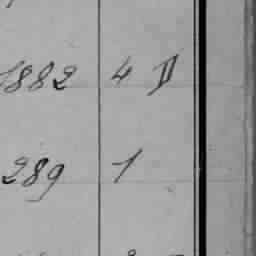 1882 4 D
289 1